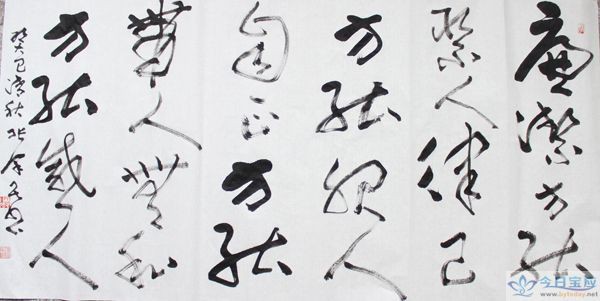 廉潔方能
聚人律己
方能服人
身正方能
帶人無私
方能感人
癸巳清秋
今日宝应
www.bytoday.net